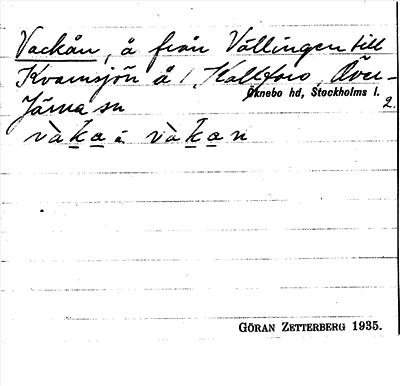 Vackån, å från Vällingen till
Kvarnsjön å / Kallfors, Över-
Öknebo hd, Stockholms l.
Järna sn
2.
vàka å vàkan
GÖRAN ZETTERBERG 1935.